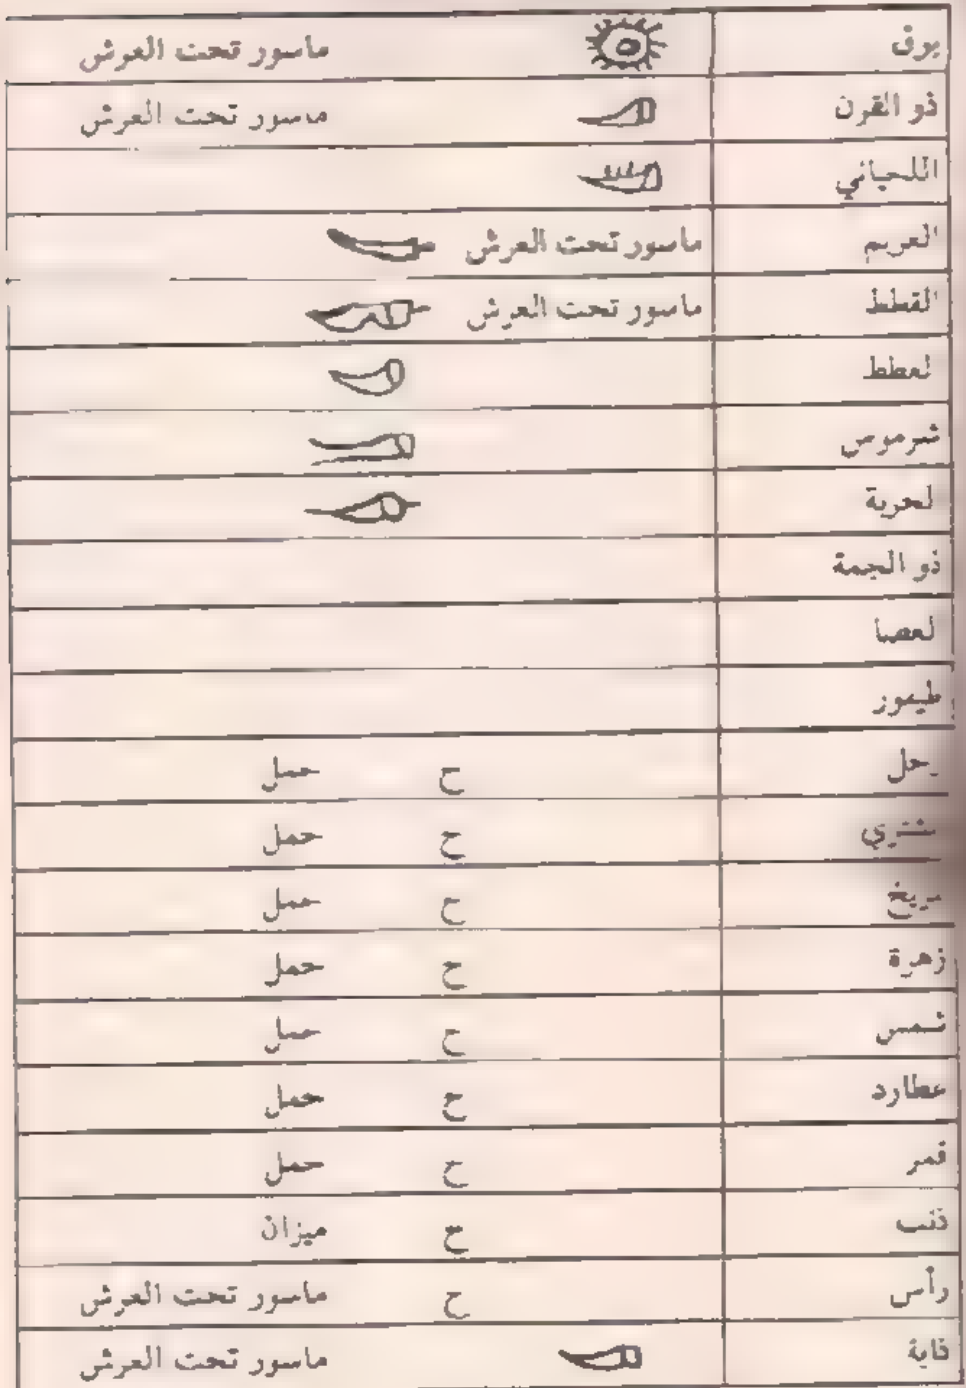 برق ماسور تحت العرش
ذو القرن ماسور تحت العرش
اللحياني
العريم ماسور تحت العرش
القطط ماسور تحت العرش
لعطط
شرموس
لحربة
ذو الجمة
لعصا
طيمور
زحل ح حمل
مشتري ح حمل
مريخ ح حمل
زهرة ح حمل
شمس ح حمل
عطارد ح حمل
قمر ح حمل
ذنب ح ميزان
رأس ح ماسور تحت العرش
ماسور تحت العرش